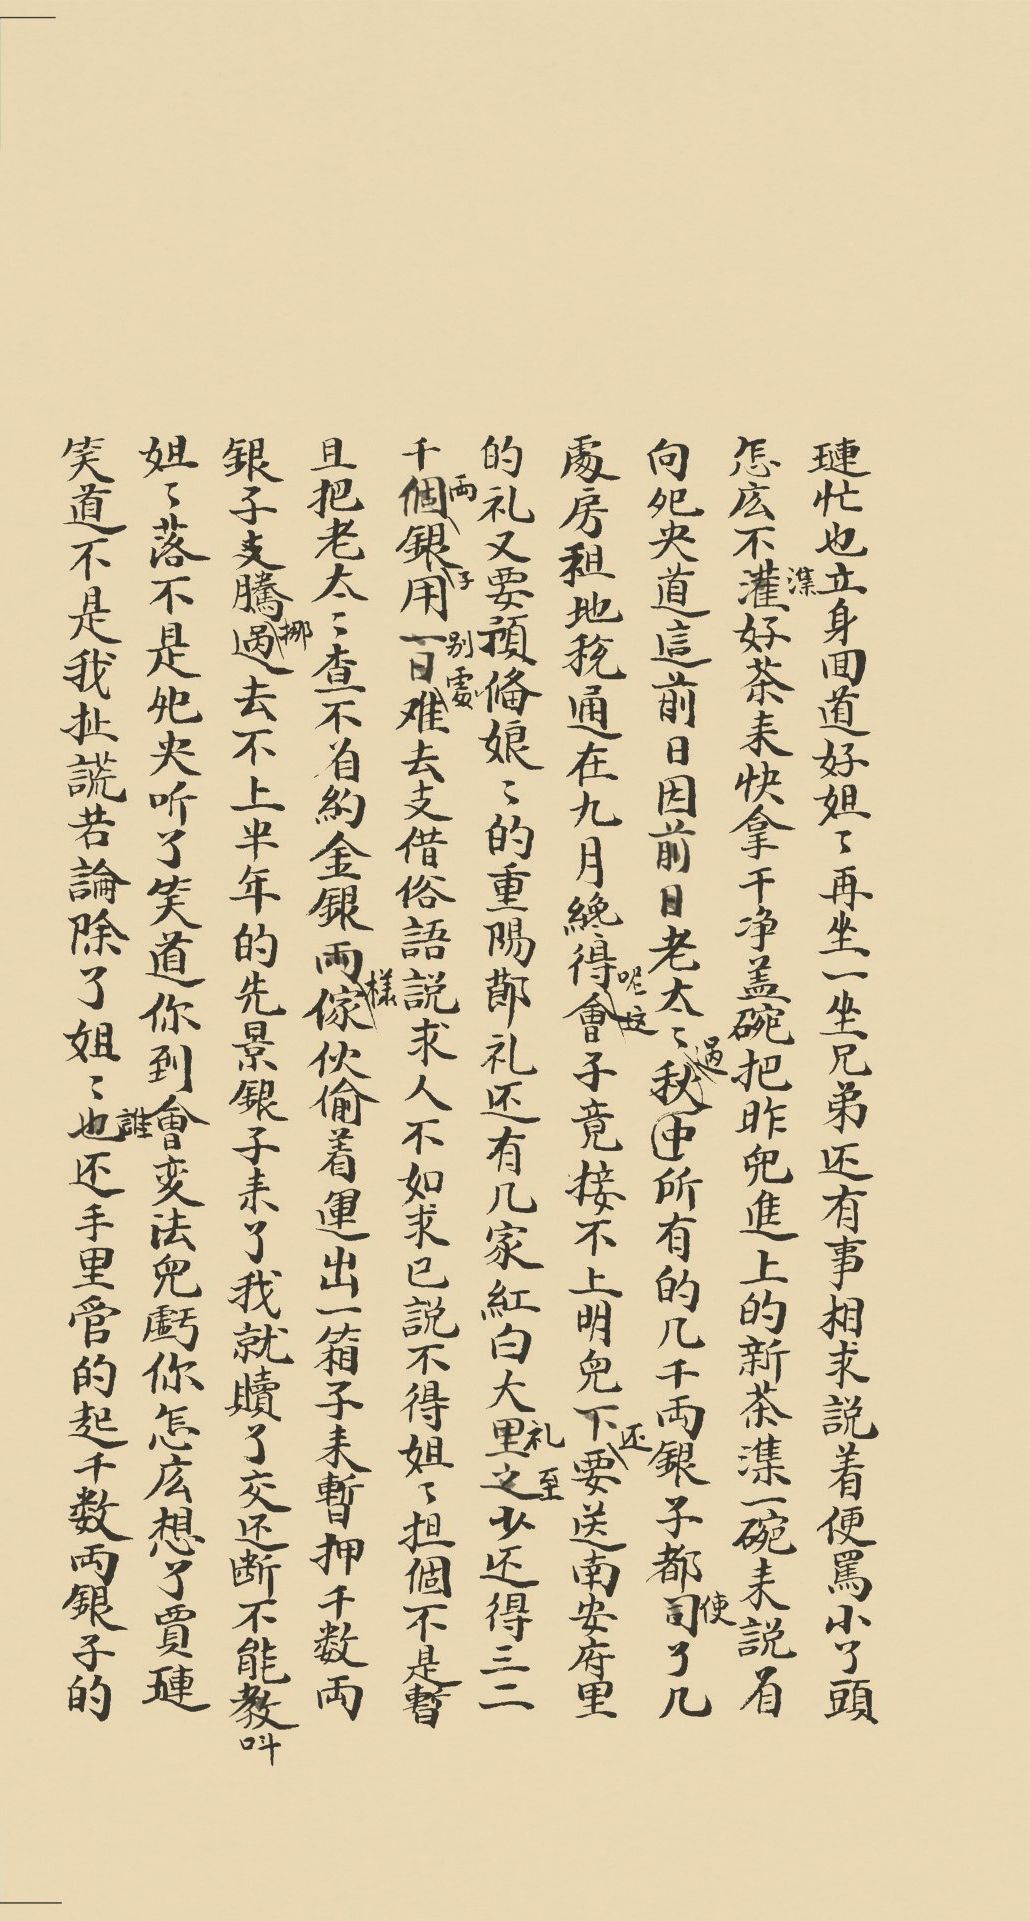 璉忙也立身回道好姐〻再坐一坐兄弟还有事相求説着便罵小了頭
怎広不灌好茶来快拿干净盖碗把昨兒進上的新茶潗一碗来説着
潗
向夗央道這前日因前日老太〻秋中所有的几千両銀子都司了几
過
使
處房租地税通在九月纔得會子竟接不上明兒下要送南安府里
呢这
还
的礼又要預俻娘〻的重陽莭礼还有几家紅白大里之少还得三二
礼
至
千個銀用一日难去支借俗語説求人不如求已説不得姐〻担個不是暫
両
子
别處
且把老太〻查不着的金銀両傢伙偷着運出一箱子来暫押千数両
樣
銀子支騰過去不上半年的先景銀子来了我就贖了交还断不能教
挪
叫
姐〻落不是夗央听了笑道你到會变法兒虧你怎広想了賈璉
笑道不是我扯謊若論除了姐〻也还手里管的起千数両銀子的
誰